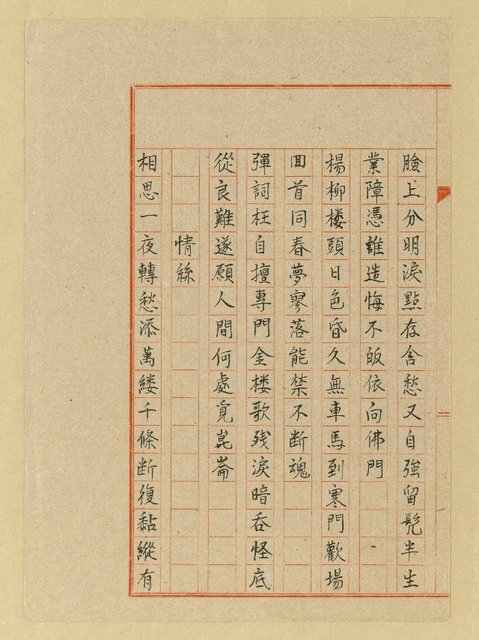 臉上分明淚點存含愁又自強留髡半生
業障憑誰造悔不皈依向佛門
楊柳楼頭日色昏久無車馬到寒門歡場
回首同春夢寥落能禁不断魂
彈詞枉自擅專門金楼歌残淚暗吞怪底
從良難遂願人間何處覓崑崙
情絲
相思一夜轉愁添萬縷千條断復黏縱有